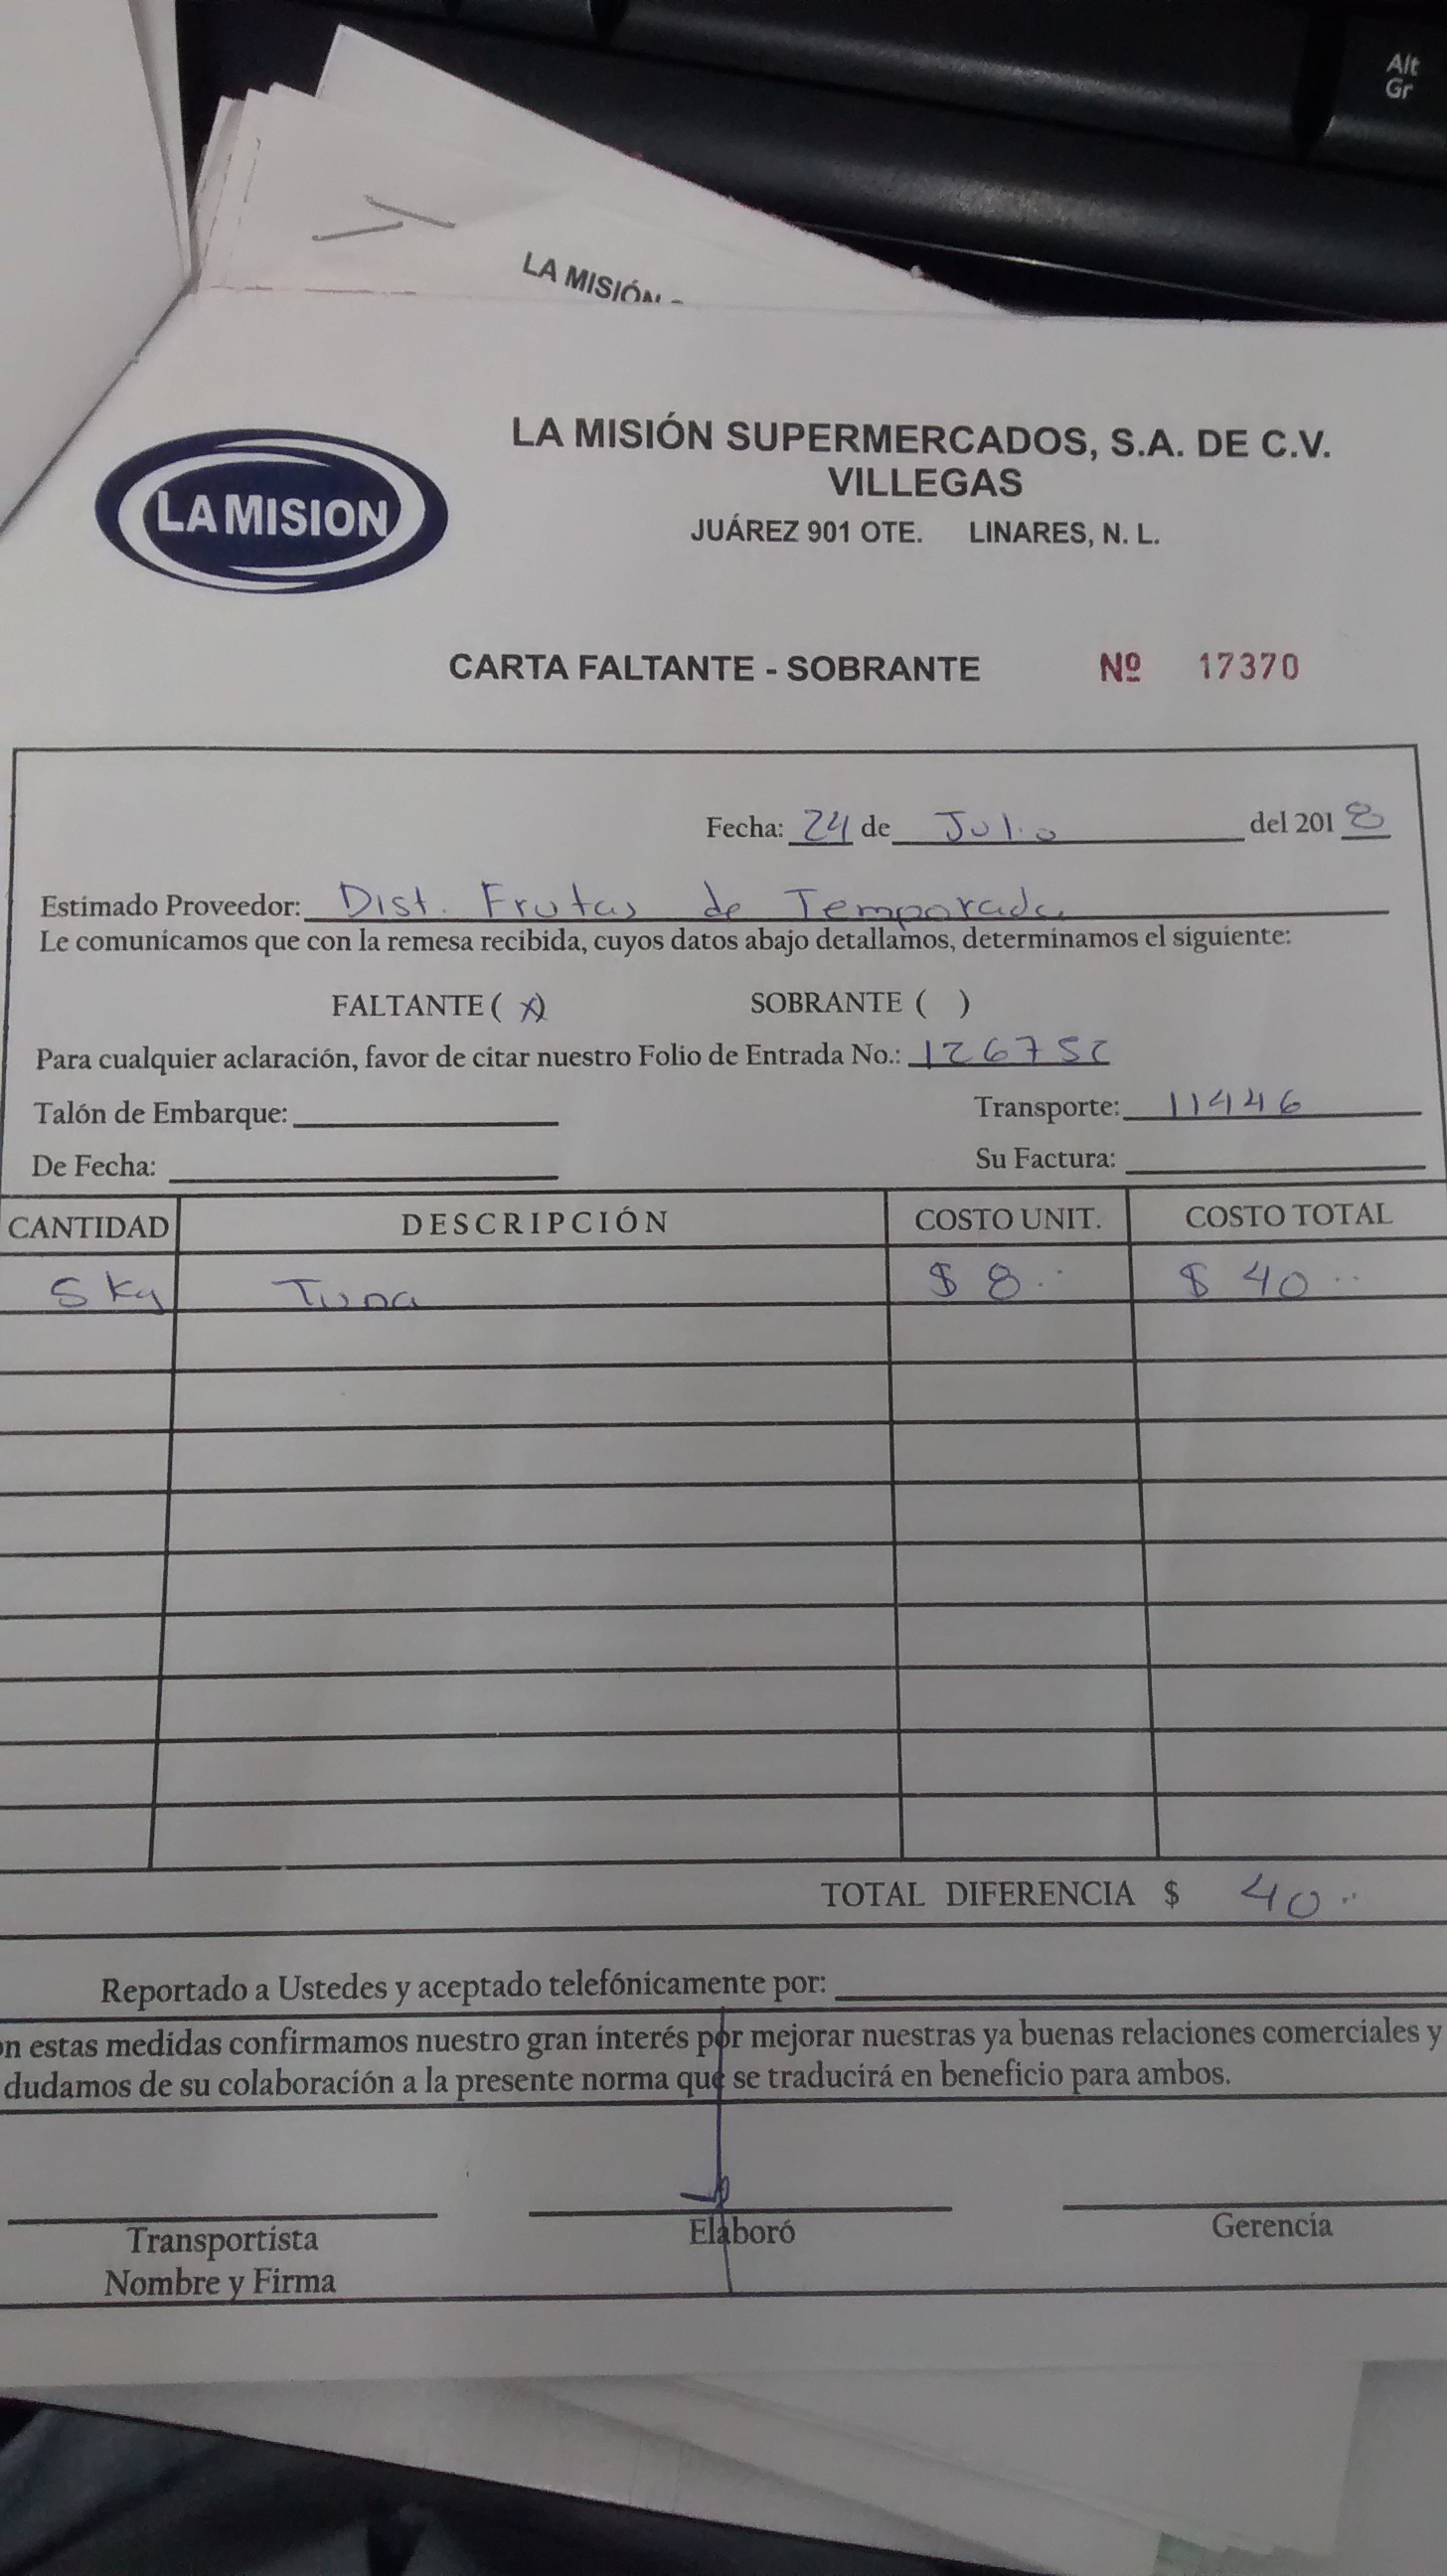 Alt
Gr
LA MISIÓN
LA MISION
LA MISIÓN SUPERMERCADOS, S.A. DE C.V.
VILLEGAS
JUÁREZ 901 OTE. LINARES, N. L.
CARTA FALTANTE - SOBRANTE Nº 17370
Fecha: 24 de Julio del 2018
Estimado Proveedor: Dist. Frutas de Temporada
Le comunicamos que con la remesa recibida, cuyos datos abajo detallamos, determinamos el siguiente:
FALTANTE ( x ) SOBRANTE ( )
Para cualquier aclaración, favor de citar nuestro Folio de Entrada No.: 126752
Talón de Embarque: Transporte: 11446
De Fecha: Su Factura:
CANTIDAD DESCRIPCIÓN COSTO UNIT. COSTO TOTAL
5 Kg Tuna $ 8.. $ 40..
TOTAL DIFERENCIA $ 40..
Reportado a Ustedes y aceptado telefónicamente por:
on estas medidas confirmamos nuestro gran interés por mejorar nuestras ya buenas relaciones comerciales y
dudamos de su colaboración a la presente norma que se traducirá en beneficio para ambos.
Transportista Elaboró Gerencia
Nombre y Firma